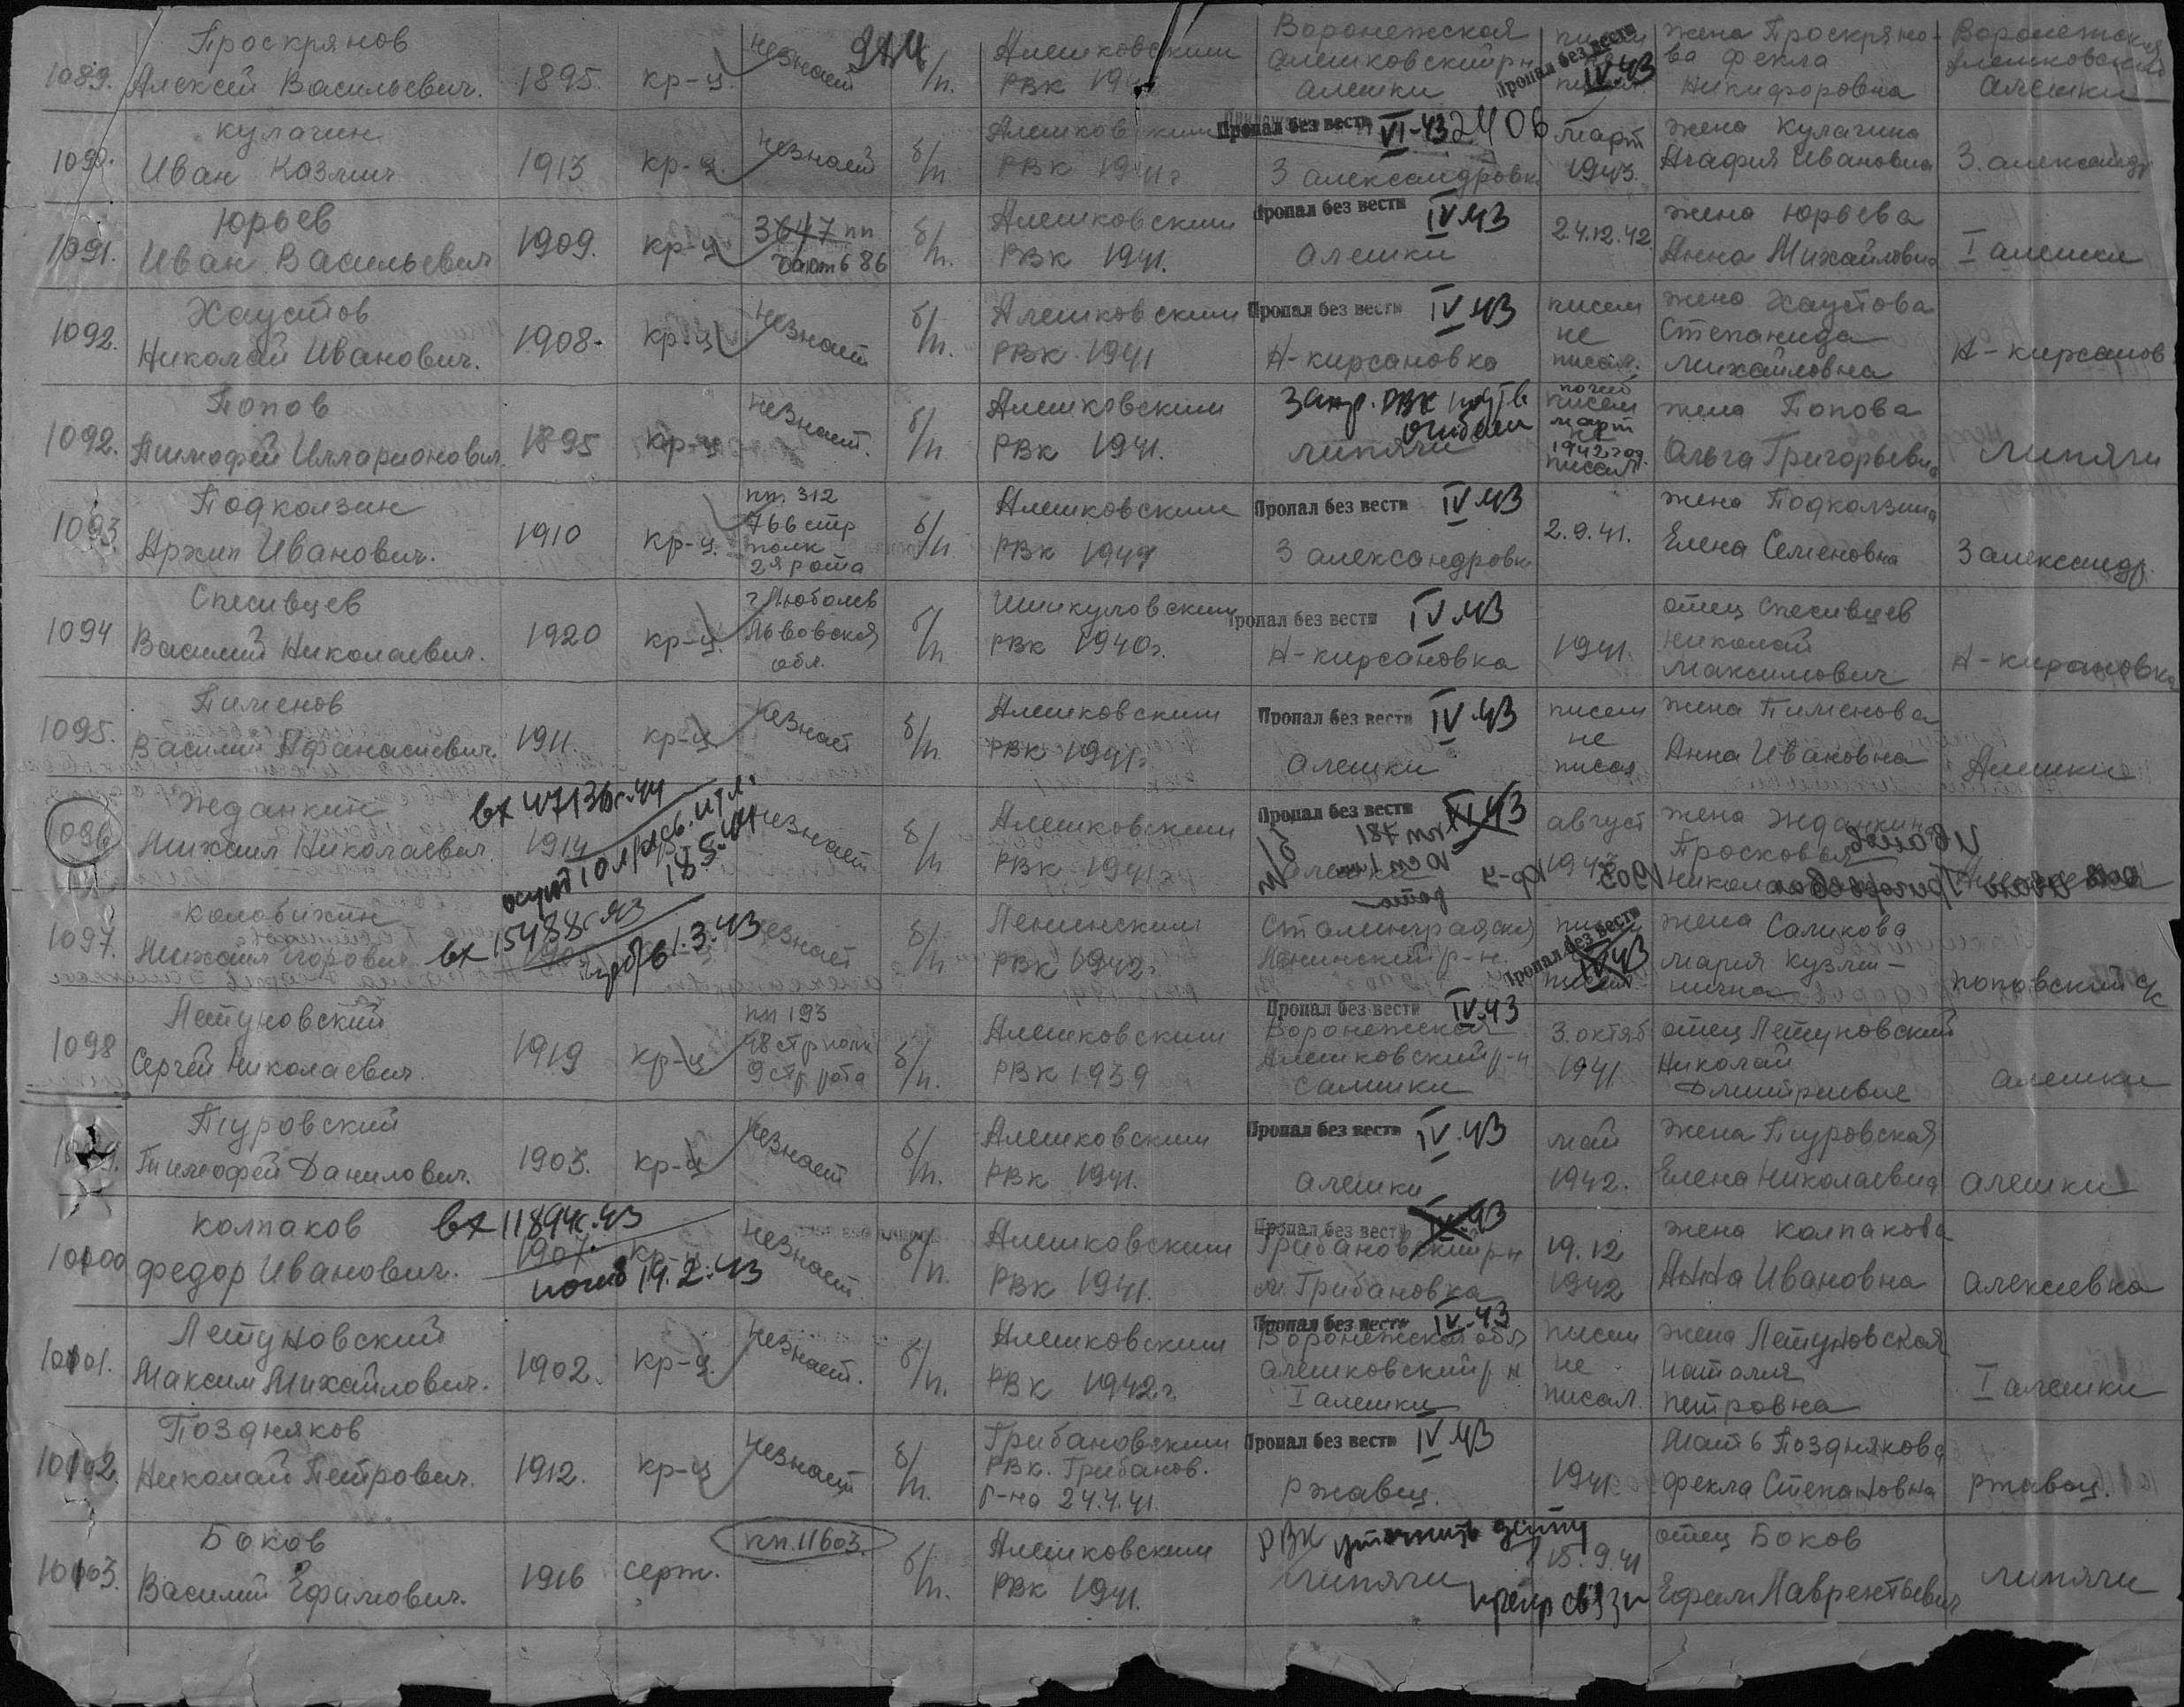 1089. Проскрянов Алексей Васильевич. 1895. кр-ц. незнает б/п. Алешковским РВК Воронежская Алешковский р-н Алешки Пропал без вести IV.43 жена Проскрянова Фекла Никифоровна Воронежская Алешковский Алешки
1090. Кулагин Иван Козмич 1913 кр-ц. незнает б/п Алешковским РВК 1941г Пропал без вести VI-43 2406 3 александровка март 1943. жена Кулагина Агафия Ивановна 3. александр
1091. Юрьев Иван Васильевич 1909. кр-ц 3647 пп часть 686 б/п. Алешковским РВК 1941. Пропал без вести IV.43 Алешки 24.12.42. жена Юрьева Анна Михайловна I алешки
1092. Хаустов Николай Иванович. 1908. кр-ц незнает б/п. Алешковским РВК 1941 Пропал без вести IV.43 Н-кирсановка писем не писал. жена Хаустова Степанида Михайловна Н-кирсанов
1092. Попов Тимофей Илларионович. 1895 кр-ц незнает. б/п. Алешковским РВК 1941. липяги писем март 1942 год. писал жена Попова Ольга Григорьевна липяги
1093. Подколзин Архип Иванович. 1910 кр-ц. пп. 312 766 стр полк 2я рота б/п. Алешковским РВК Пропал без вести IV.43 3 александровк 2.9.41. жена Подколзина Елена Семеновна 3 александр.
1094 Спесивцев Василий Николаевич. 1920 кр-ц. г Любомль Львовская обл. б/п РВК 1940г. Пропал без вести IV.43 Н-кирсановка 1941. отец Спесивцев Николай Максимович Н-кирсановка
1095. Пименов Василий Афанасиевич. 1911. кр-ц незнает б/п. Алешковским РВК 1941г Пропал без вести IV.43 Алешки писем не писал жена Пименова Анна Ивановна Алешки
1096 Жданкин Михаил Николаевич. 1914 вх 47136с.44 18.5.44 незнает б/п Алешковским РВК 1941г Пропал без вести август жена Жданкина Просковья
1097. Колобихин Михаил Егорович. вх 15488с43 1.3.43 незнает б/п Ленинским РВК 1942г Сталинградская Ленинский р-н. Пропал без вести IV.43 жена Саликова Мария Кузминична поповский с/с
1098 Летуновский Сергей Николаевич. 1919 кр-ц пп 193 48 стр полк 9 стр рота б/п. Алешковским РВК 1939 Пропал без вести IV.43 Воронежская Алешковский р-н Самешки 3. октяб 1941 отец Летуновский Николай Дмитриевич алешки
Туровский Тимофей Данилович. 1903. кр-ц незнает б/п. Алешковским РВК 1941. Пропал без вести IV.43 Алешки май 1942. жена Туровская Елена Николаевна алешки
10100 Колпаков Федор Иванович. вх 11894с.43 1901. кр-ц погиб 19.2.43 незнает б/п. Алешковским РВК 1941. Пропал без вести IV.43 Грибановский р-н м. Грибановка 19.12 1942 жена Колпакова Анна Ивановна алексевка
10101. Летуновский Максим Михайлович. 1902. кр-ц. незнает. б/п. Алешковским РВК 1942г Пропал без вести IV.43 Воронежская обл алешковский р-н I алешки писем не писал. жена Летуновская Наталия Петровна I алешки
10102. Поздняков Николай Петрович. 1912. кр-ц незнает б/п. Грибановским РВК. Грибанов. р-на 24.4.41. Пропал без вести IV.43 Ржавец. 1941. мать Позднякова Фекла Степановна ржавец.
10103. Боков Василий Ефимович. 1916 серж. пп. 11603. б/п. Алешковским РВК 1941. РВК уточнить липяги 15.9.41 связи отец Боков Ефим Лаврентьевич липяги